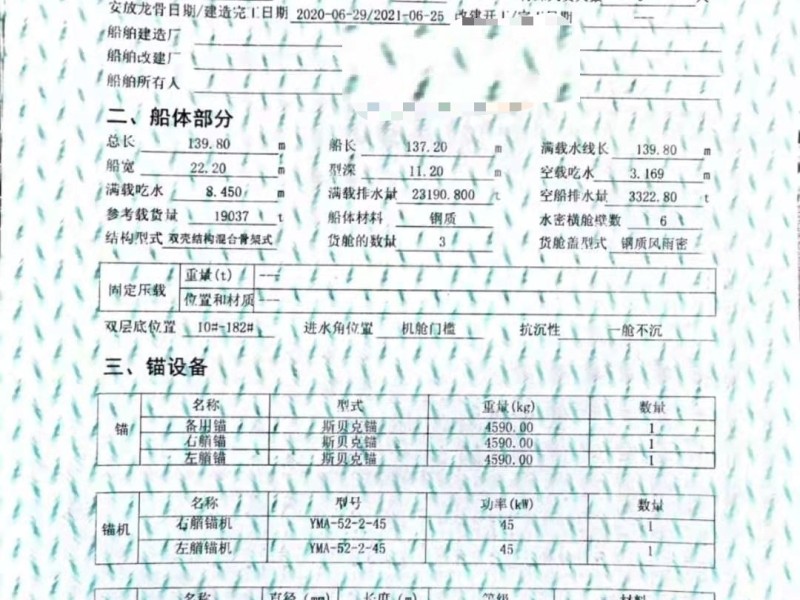 安放龙骨日期/建造完工日期 2020-06-29/2021-06-25 改建开工/完工日期 ---
船舶建造厂
船舶改建厂
船舶所有人
二、船体部分
总长 139.80 m 船长 137.20 m 满载水线长 139.80 m
船宽 22.20 m 型深 11.20 m 空载吃水 3.169 m
满载吃水 8.450 m 满载排水量 23190.800 t 空船排水量 3322.80 t
参考载货量 19037 t 船体材料 钢质 水密横舱壁数 6
结构型式 双壳结构混合骨架式 货舱的数量 3 货舱盖型式 钢质风雨密
固定压载 重量(t) ---
位置和材质 ---
双层底位置 10#-182# 进水角位置 机舱门槛 抗沉性 一舱不沉
三、锚设备
锚 名称 型式 重量(kg) 数量
备用锚 斯贝克锚 4590.00 1
右艏锚 斯贝克锚 4590.00 1
左艏锚 斯贝克锚 4590.00 1
锚机 名称 型号 功率(kW) 数量
右艏锚机 YMA-52-2-45 45 1
左艏锚机 YMA-52-2-45 45 1
名称 直径(mm) 长度(m) 等级 材料